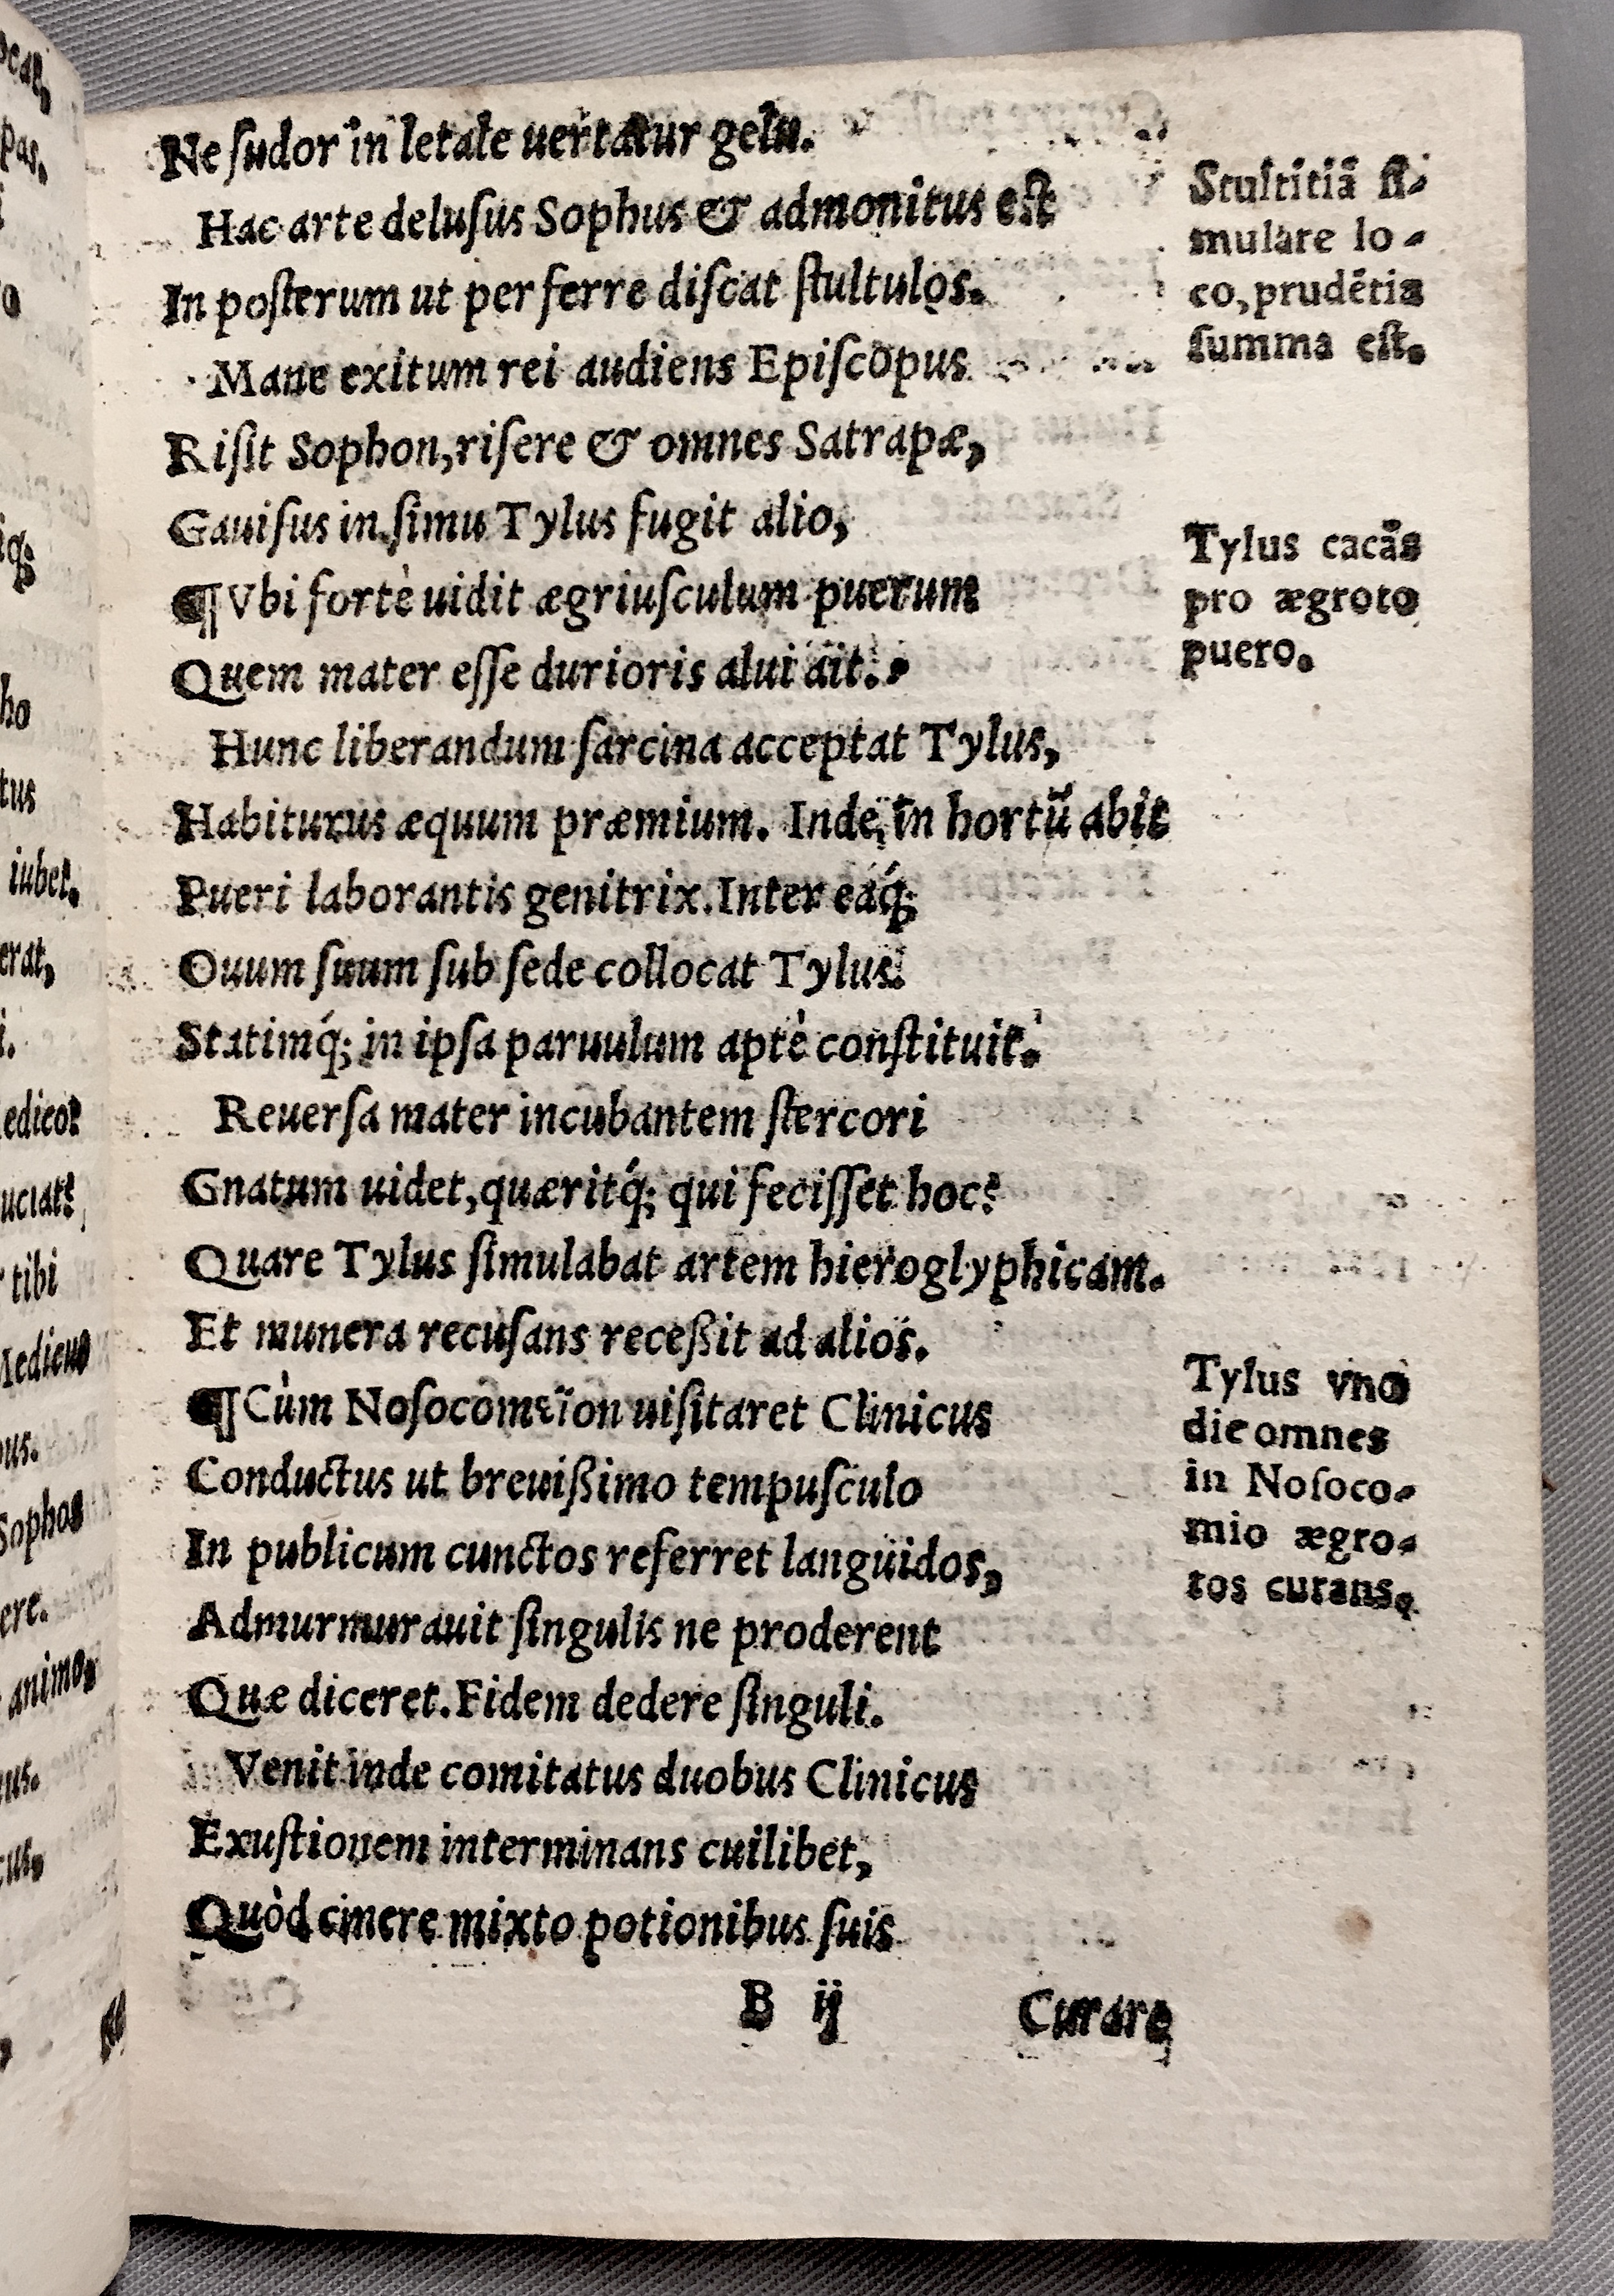 Ne ſudor in letale uertatur gelu.
Hac arte deluſus Sophus & admonitus eſt
In poſterum ut per ferre diſcat ſtultulos.
Mane exitum rei audiens Epiſcopus
Riſit Sophon, riſere & omnes Satrapæ,
Gauiſus in ſimu Tylus fugit alio,
¶ Vbi fortè uidit ægriuſculum puerum
Quem mater eſſe durioris alui ait.
Hunc liberandum ſarcina acceptat Tylus,
Habiturus æquum præmium. Inde in hortū abit
Pueri laborantis genitrix. Inter eaq́;
Ouum ſuum ſub ſede collocat Tylus.
Statimq́; in ipſa paruulum aptè conſtituit.
Reuerſa mater incubantem ſtercori
Gnatum uidet, quæritq́; qui feciſſet hoc?
Quare Tylus ſimulabat artem hieroglyphicam.
Et munera recuſans receßit ad alios.
¶ Cùm Noſocomεῖon uiſitaret Clinicus
Conductus ut breuißimo tempuſculo
In publicum cunctos referret languidos,
Admurmurauit ſingulis ne proderent
Quæ diceret. Fidem dedere ſinguli.
Venit inde comitatus duobus Clinicus
Exuſtionem interminans cuilibet,
Quòd cinere mixto potionibus ſuis
B ij Curare
Stultitiā ſi-
mulare lo-
co, prudētia
ſumma eſt.
Tylus cacās
pro ægroto
puero.
Tylus vno
die omnes
in Noſoco-
mio ægro-
tos curans.
ho
tus
iubet.
erat,
edicor
tibi
Medicus
Sophos
ere.
animo.